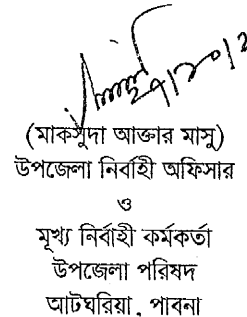 (মাকসুদা আক্তার মাসু)
উপজেলা নির্বাহী অফিসার
ও
মূখ্য নির্বাহী কর্মকর্তা
উপজেলা পরিষদ
আটঘরিয়া, পাবনা